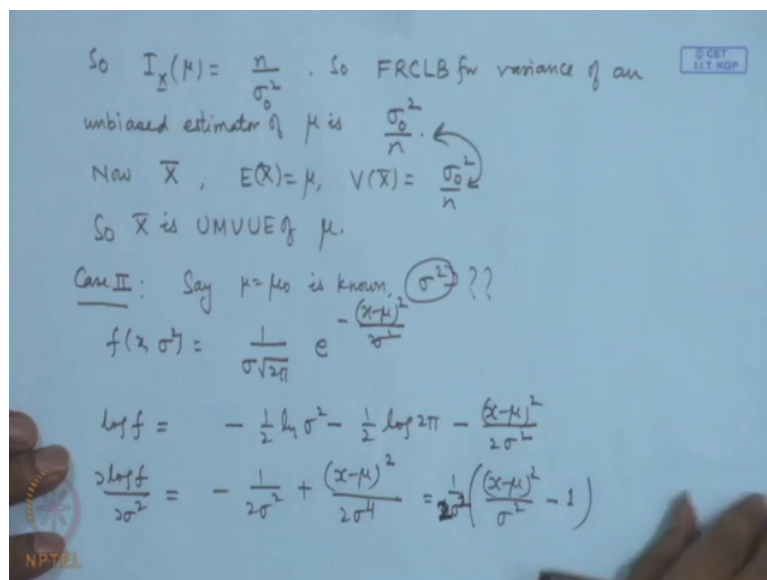 So I_X(μ) = n/σ₀² . So FRCLB for variance of an
© CET
I.I.T. KGP
unbiased estimator of μ is σ₀²/n .
Now X̄ , E(X̄) = μ, V(X̄) = σ₀²/n
So X̄ is UMVUE of μ.
Case II : Say μ=μ₀ is known, σ² ??
f(x, σ²) = 1/(σ√2π) e^{-(x-μ)²/2σ²}
log f = - 1/2 ln σ² - 1/2 log 2π - (x-μ)²/2σ²
∂log f/∂σ² = - 1/2σ² + (x-μ)²/2σ⁴ = 1/2σ² ( (x-μ)²/σ² - 1 )
NPTEL